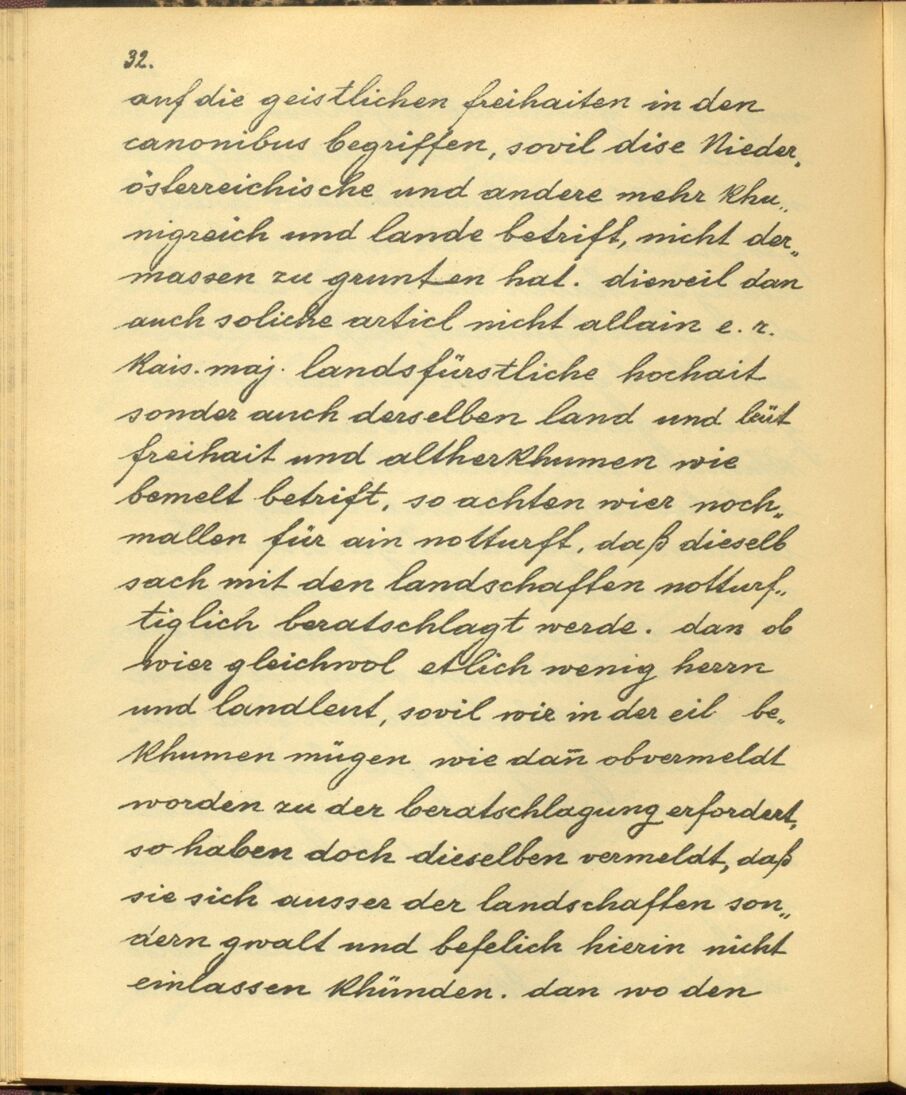 32.
auf die geistlichen freihaiten in den
canonibus begriffen, sovil dise Nieder„
österreichische und andere mehr Khu„
nigreich und lande betrift, nicht der„
massen zu grunten hat. dieweil dan
auch soliche articl nicht allain e. r.
Kais. maj. landsfürstliche hochait
sonder auch derselben land und leüt
freihait und altherkhumen wie
bemelt betrift, so achten wier noch„
mallen für ain notturft, daß dieselb
sach mit den landschaften notturf„
tiglich beratschlagt werde. dan ob
wier gleichwol etlich wenig herrn
und landleut, sovil wir in der eil be„
khumen mügen wie dan̄ obvermeldt
worden zu der beratschlagung erfordert,
so haben doch dieselben vermeldt, daß
sie sich ausser der landschaften son„
dern gwalt und befelich hierin nicht
einlassen khünden. dan wo den